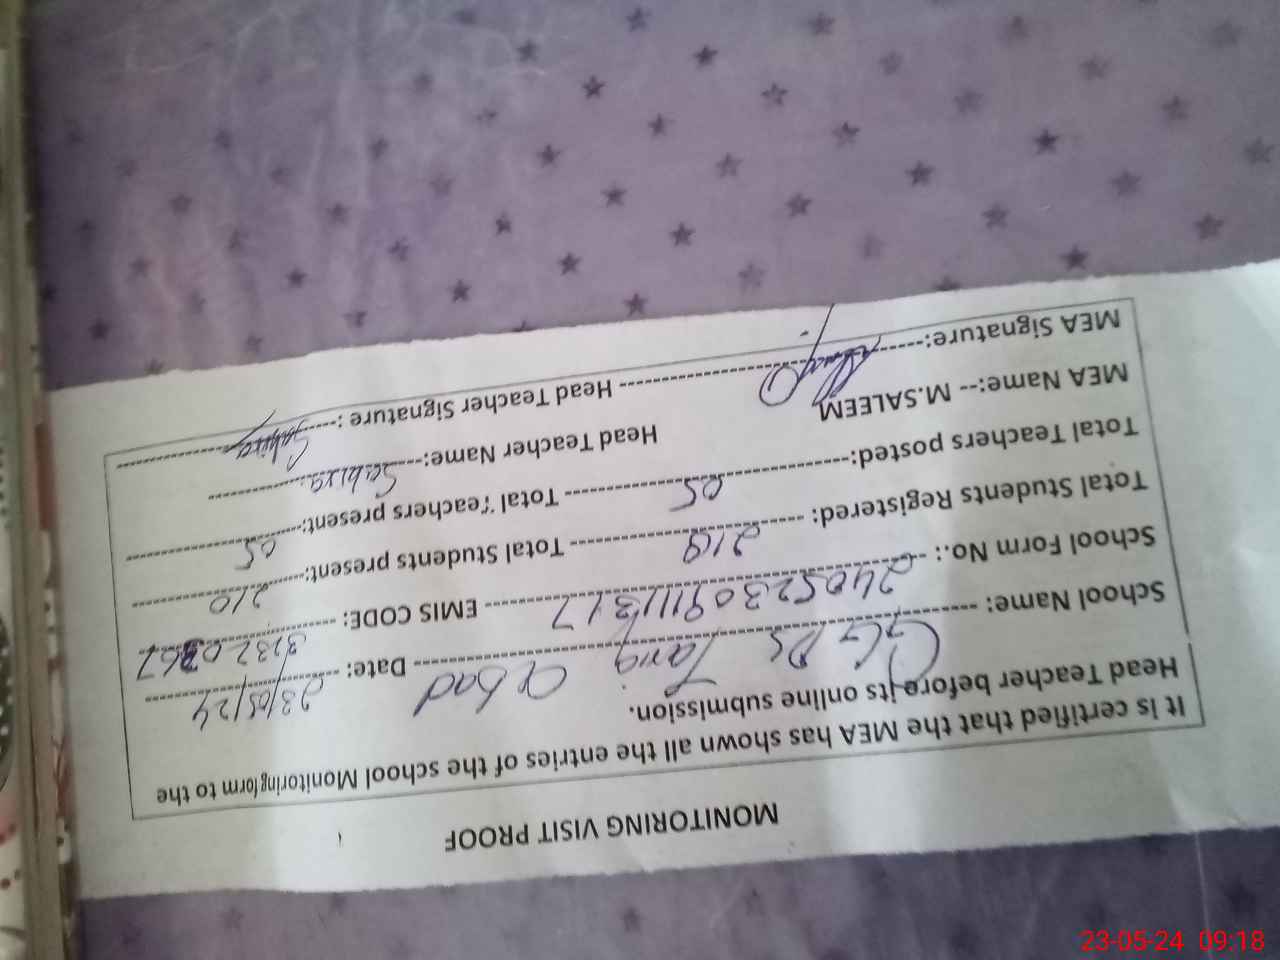 MONITORING VISIT PROOF
It is certified that the MEA has shown all the entries of the school Monitoring form to the
Head Teacher before its online submission.
School Name: GGPS Tariq abad Date: 23/05/24
School Form No.: 24052309111317 EMIS CODE:
Total Students Registered: 219 Total Students present: 210
Total Teachers posted: 05 Total Teachers present: 05
MEA Name:-- M.SALEEM Head Teacher Name: Sabira
MEA Signature: Head Teacher Signature : Sabira
23-05-24 09:18